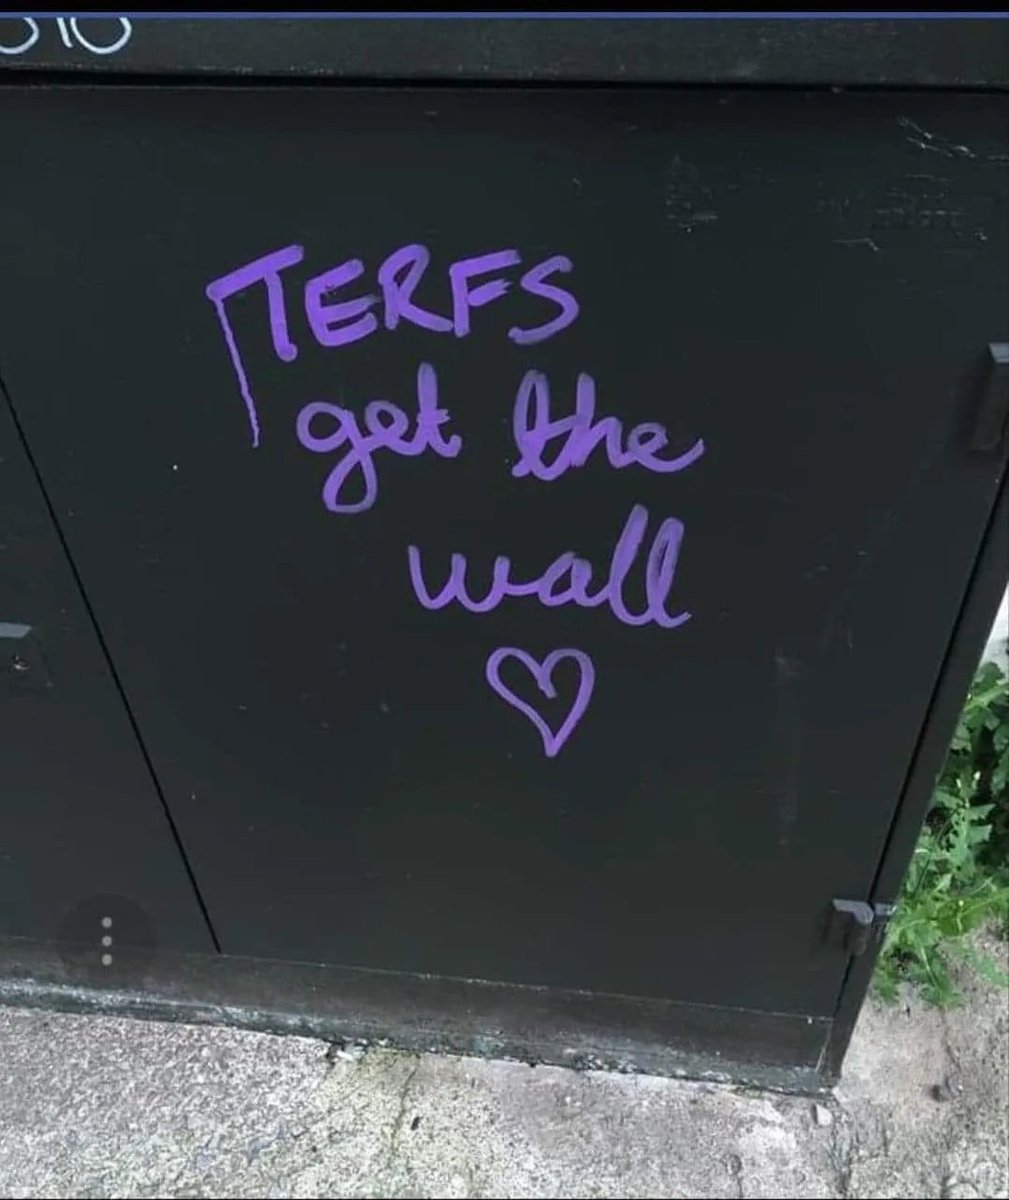 TERFS
get the
wall